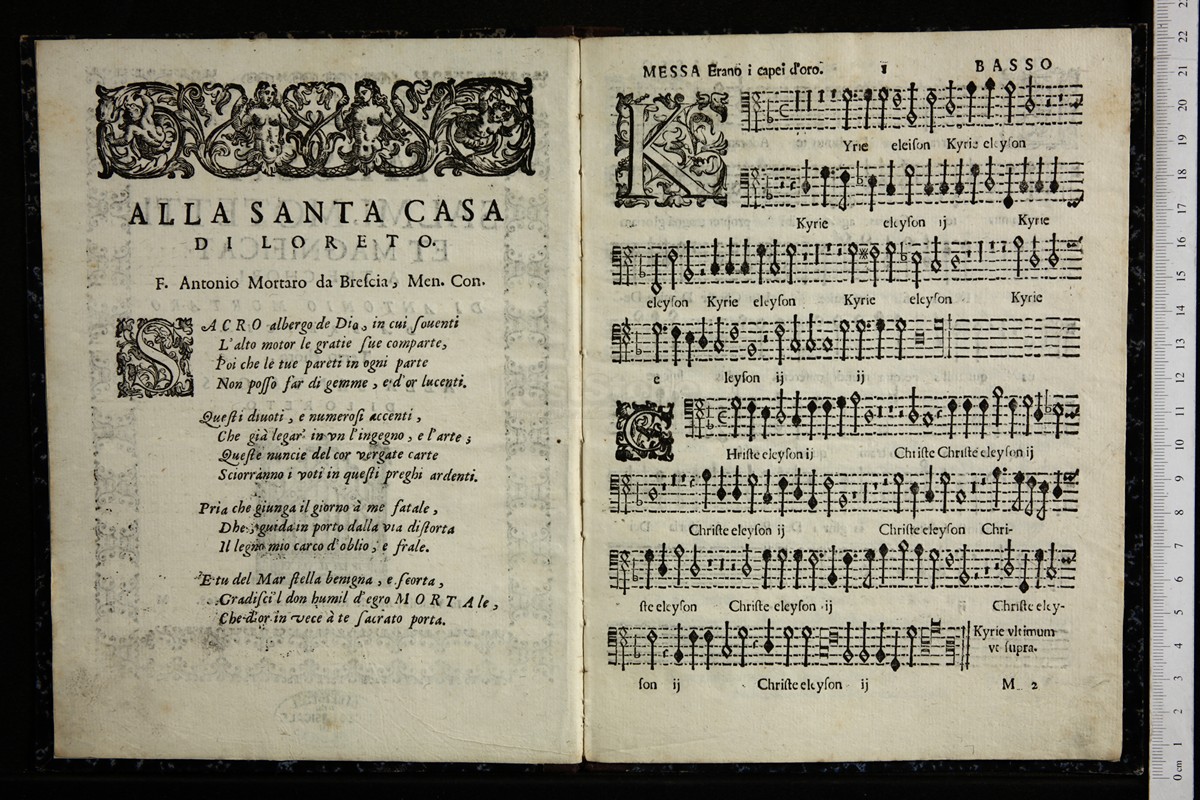 ALLA SANTA CASA
DI LORETO.
F. Antonio Mortaro da Breſcia, Men. Con.
SACRO albergo de Dio, in cui ſouenti
L'alto motor le gratie ſue comparte,
Poi che le tue pareti in ogni parte
Non poſſo far di gemme, e d'or lucenti.
Queſti diuoti, e numeroſi accenti,
Che già legar' in vn l'ingegno, e l'arte;
Queſte nuncie del cor vergate carte
Sciorranno i voti in queſti preghi ardenti.
Pria che giunga il giorno à me fatale,
Dhe, guida in porto dalla via diſtorta
Il legno mio carco d'oblio, e frale.
E tu del Mar ſtella benigna, e ſcorta,
Gradiſci'l don humil d'egro MORTAle,
Che d'or in vece à te ſacrato porta.
MESSA Erano i capei d'oro. 1 BASSO
KYrie eleiſon Kyrie eleyſon
Kyrie eleyſon ij Kyrie
eleyſon Kyrie eleyſon Kyrie eleyſon Kyrie
e leyſon ij ij
CHriſte eleyſon ij Chriſte Chriſte eleyſon ij
Chriſte eleyſon ij Chriſte eleyſon Chri-
ſte eleyſon Chriſte eleyſon ij ij Chriſte eley-
Kyrie vltimum
vt ſupra.
ſon ij Chriſte eleyſon ij M 2